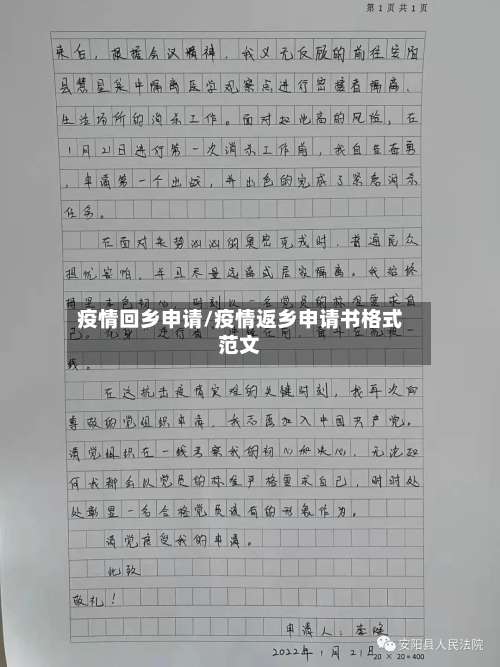 第 1 页 共 1 页
来自，根据会议精神，我义无反顾的前往安阳
县慧星集中隔离医学观察点进行密接者隔离、
生活场所的消杀工作。面对如此高的风险，在
1月21日进行第一次消杀工作前，我自告奋勇
，申请第一个出战，并出色的完成了紧急消杀
任务。
在面对来势汹汹的奥密克戎时，普通民众
担忧害怕，并且尽量远离或居家隔离。我始终
疫情回乡申请/疫情返乡申请书格式
范文
线。
在这抗击疫情灾难的关键时刻，我再次向
尊敬的党组织申请，我志愿加入中国共产党。
请党组织在一线考察我的初心和决心，无论如
何我都会以党员的标准严格要求自己，时时处
处彰显一名合格党员该有的形象作为。
请党接受我的申请。
此致
敬礼！
申请人：李
2022年1月21日
20 × 20 = 400
安阳县人民法院